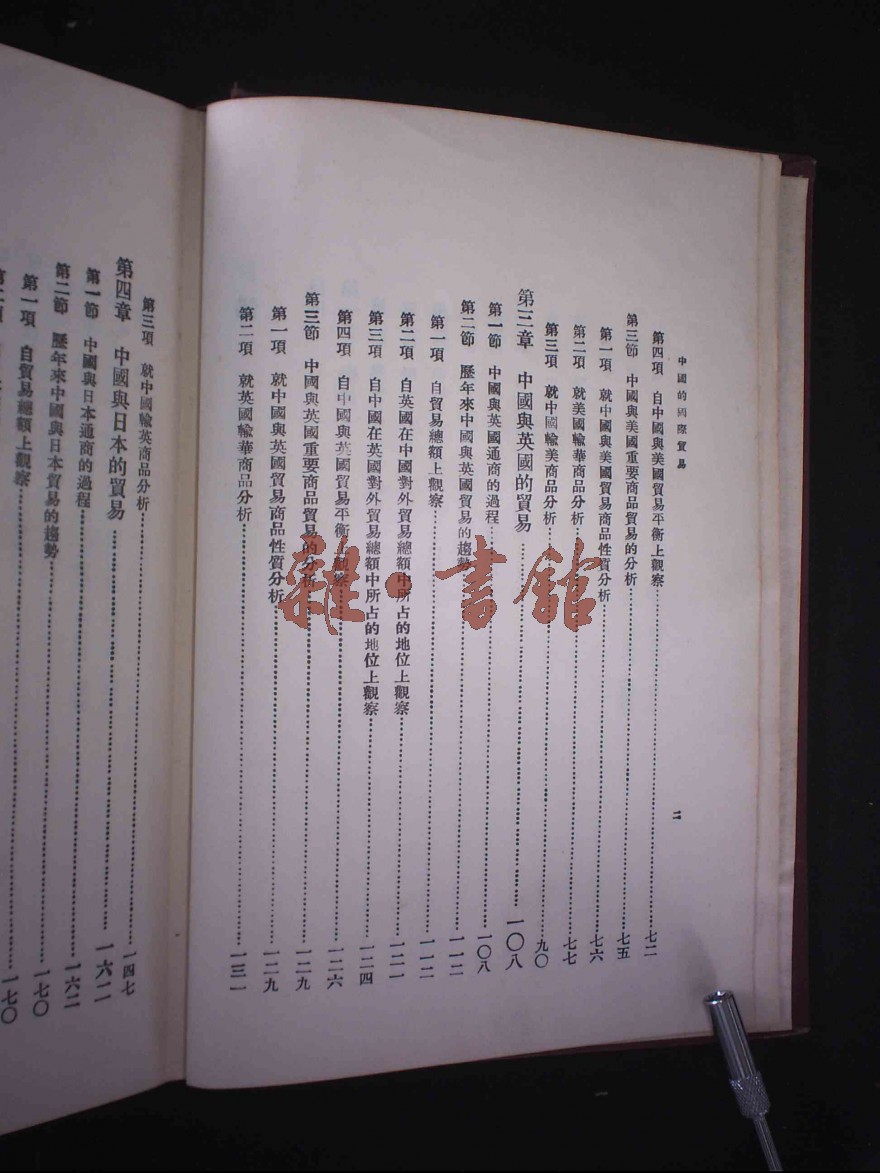 中國的國際貿易
第四項　自中國與美國貿易平衡上觀察……七二
第三節　中國與美國重要商品貿易的分析……七五
第一項　就中國與美國貿易商品性質分析……七六
第二項　就美國輸華商品分析……七七
第三項　就中國輸美商品分析……九〇
第三章　中國與英國的貿易……一〇八
第一節　中國與英國通商的過程……一〇八
第二節　歷年來中國與英國貿易的趨勢……一一二
第一項　自貿易總額上觀察……一一二
第二項　自英國在中國對外貿易總額中所占的地位上觀察……一二一
第三項　自中國在英國對外貿易總額中所占的地位上觀察……一二四
第四項　自中國與英國貿易平衡上觀察……一二六
第三節　中國與英國重要商品貿易的分析……一二九
第一項　就中國與英國貿易商品性質分析……一二九
第二項　就英國輸華商品分析……一三一
二
第三項　就中國輸英商品分析……一四七
第四章　中國與日本的貿易……一六二
第一節　中國與日本通商的過程……一六二
第二節　歷年來中國與日本貿易的趨勢……一七〇
第一項　自貿易總額上觀察……一七〇
雜·書館